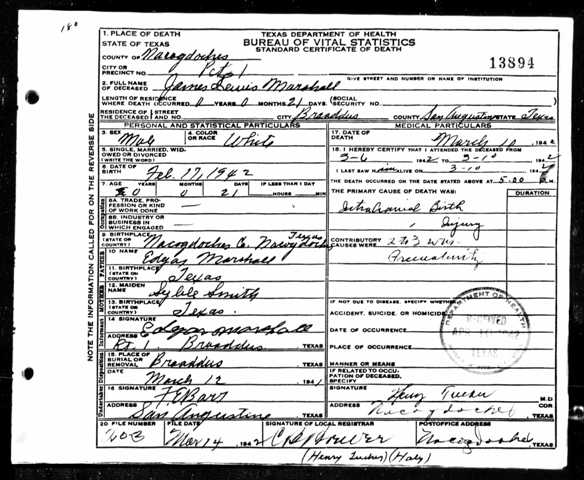 18°
TEXAS DEPARTMENT OF HEALTH
BUREAU OF VITAL STATISTICS
STANDARD CERTIFICATE OF DEATH
13894
1. PLACE OF DEATH
STATE OF TEXAS
COUNTY OF Nacogdoches
CITY OR PRECINCT NO. Pct. 1
GIVE STREET AND NUMBER OR NAME OF INSTITUTION
2. FULL NAME OF DECEASED James Lewis Marshall
LENGTH OF RESIDENCE WHERE DEATH OCCURRED 0 YEARS 0 MONTHS 21 DAYS (SOCIAL SECURITY NO.
RESIDENCE OF THE DECEASED STREET AND NO. CITY Broaddus COUNTY San Augustine STATE Texas
PERSONAL AND STATISTICAL PARTICULARS
MEDICAL PARTICULARS
3. SEX Male
4. COLOR OR RACE White
17. DATE OF DEATH March 10 1942
5. SINGLE, MARRIED, WIDOWED OR DIVORCED (WRITE THE WORD)
18. I HEREBY CERTIFY THAT I ATTENDED THE DECEASED FROM
3-6 1942 3-10 1942
6. DATE OF BIRTH Feb. 17, 1942
I LAST SAW ALIVE ON 3-10 194
THE DEATH OCCURRED ON THE DATE STATED ABOVE AT 5:00 M.
7. AGE YEARS MONTHS DAYS IF LESS THAN 1 DAY
0 0 21 HOURS MIN
THE PRIMARY CAUSE OF DEATH WAS: DURATION
8A. TRADE, PROFESSION OR KIND OF WORK DONE
Intracranial Birth
8B. INDUSTRY OR BUSINESS IN WHICH ENGAGED
Injury
9. BIRTHPLACE (STATE OR COUNTRY) Nacogdoches Co. Nacogdoches Texas
CONTRIBUTORY CAUSES WERE:
10 NAME Edgar Marshall
Prematurity
11. BIRTHPLACE (STATE OR COUNTRY) Texas
12. MAIDEN NAME Smith
IF NOT DUE TO DISEASE, SPECIFY WHETHER:
ACCIDENT, SUICIDE, OR HOMICIDE
13. BIRTHPLACE (STATE OR COUNTRY) Texas.
DATE OF OCCURRENCE
14 SIGNATURE Edgar Marshall
PLACE OF OCCURRENCE
ADDRESS Rt. 1. Broaddus TEXAS
15. PLACE OF BURIAL OR REMOVAL Broaddus TEXAS
MANNER OR MEANS
DATE March 12 194
IF RELATED TO OCCUPATION OF DECEASED, SPECIFY
16 SIGNATURE
SIGNATURE Henry Tucker M.D
ADDRESS San Augustine TEXAS
ADDRESS Nacogdoches TEXAS
20 FILE NUMBER FILE DATE SIGNATURE OF LOCAL REGISTRAR POSTOFFICE ADDRESS
Mar 14 1942 Nacogdoches, TEXAS
(Henry Tucker)
DEPARTMENT OF HEALTH
RECEIVED
TEXAS
NOTE THE INFORMATION CALLED FOR ON THE REVERSE SIDE